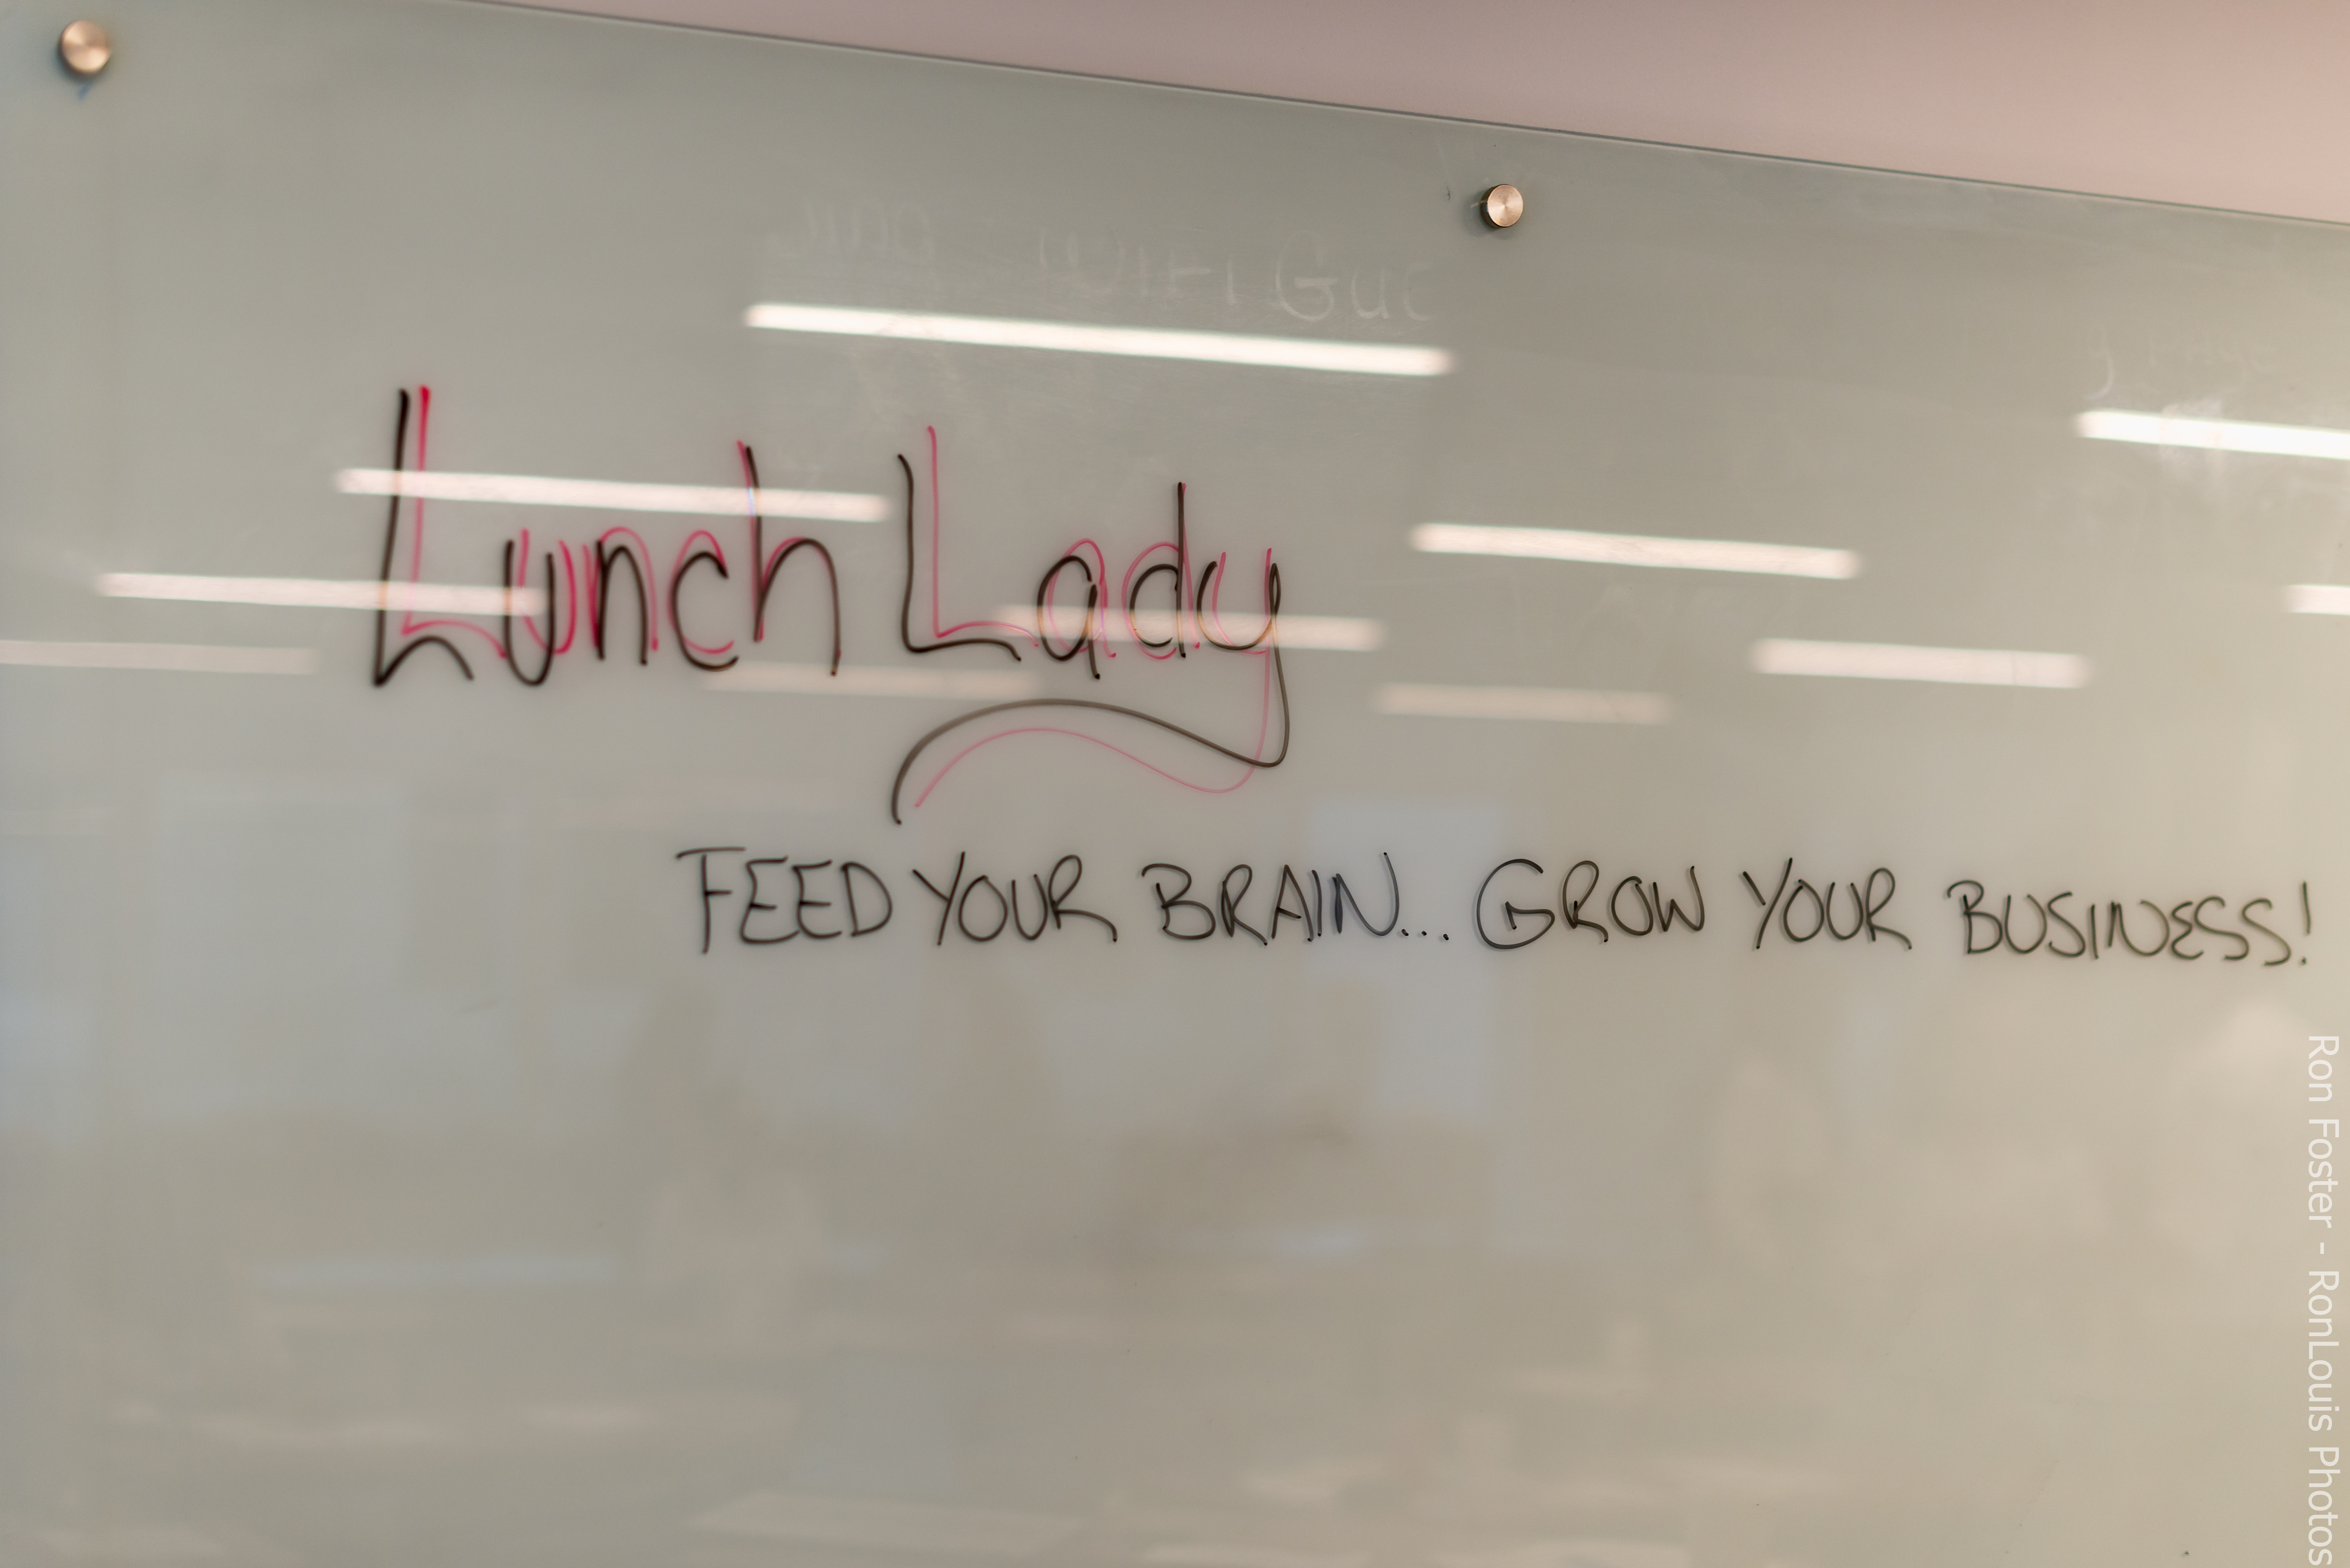 Lunch Lady
FEED YOUR BRAIN... GROW YOUR BUSINESS!
Ron Foster - RonLouis Photos